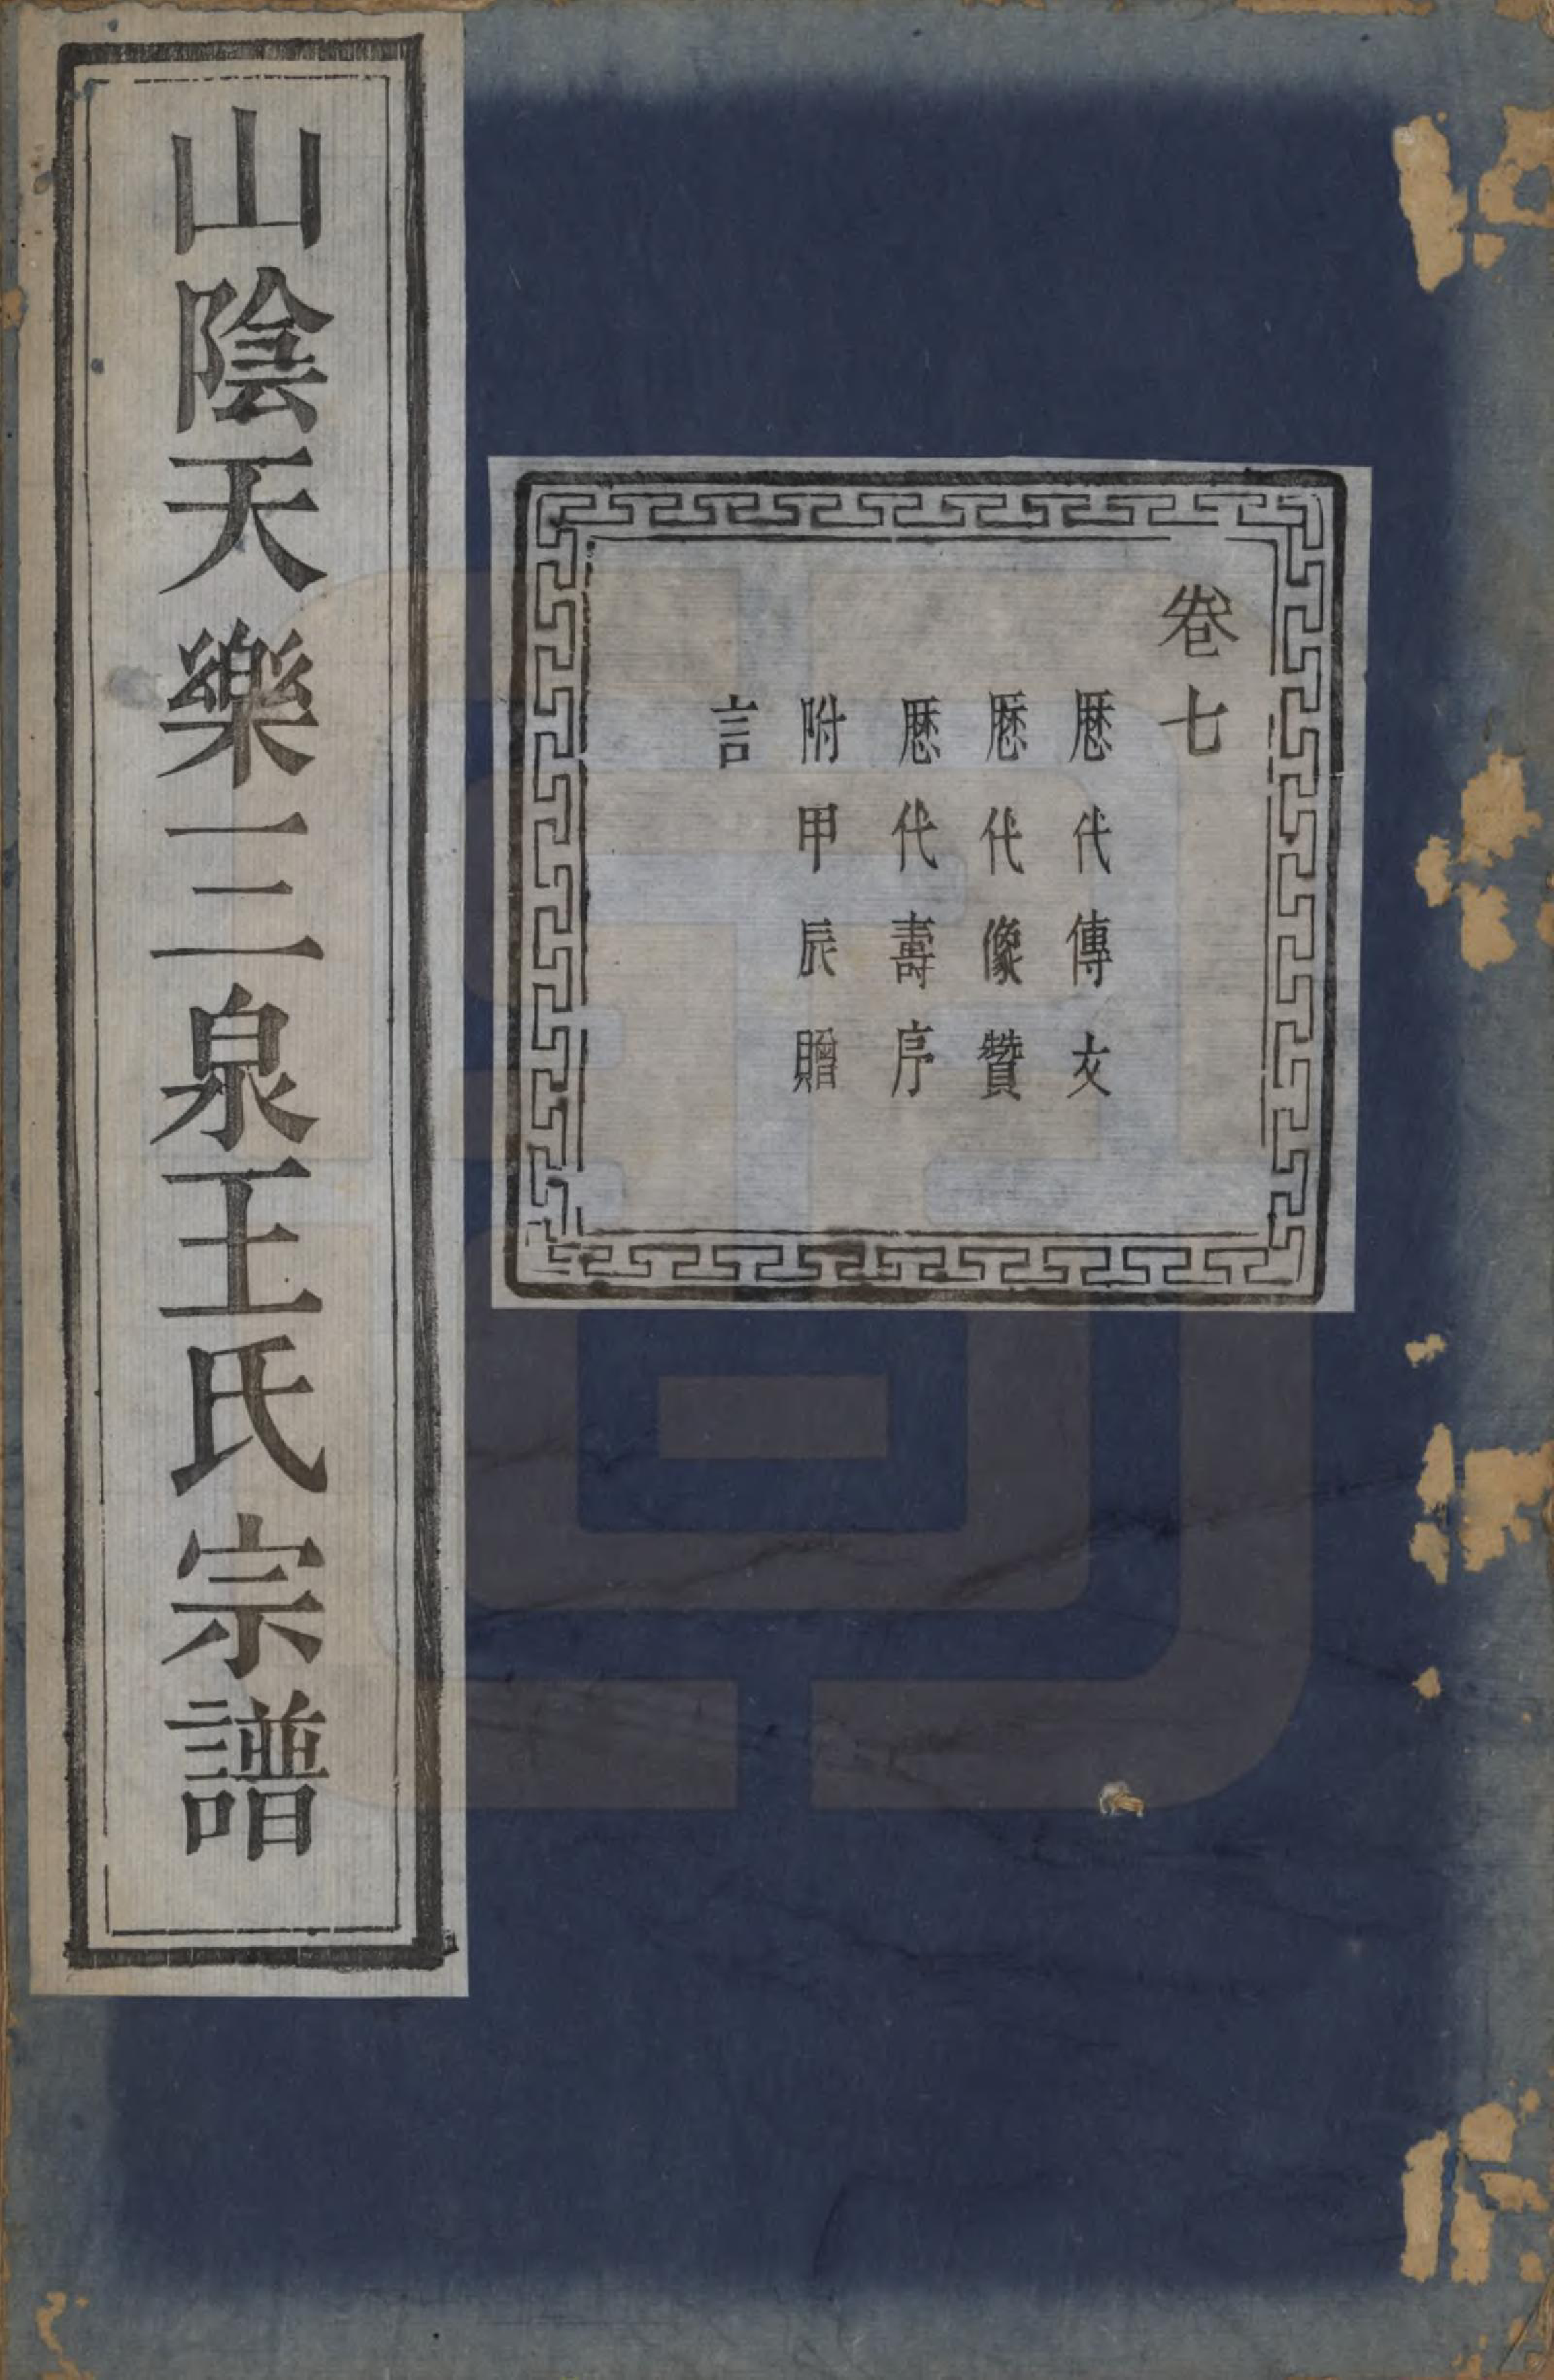 山陰天樂三泉王氏宗譜
卷七
歷代傳文
歷代像贊
歷代壽序
附甲辰贈
言